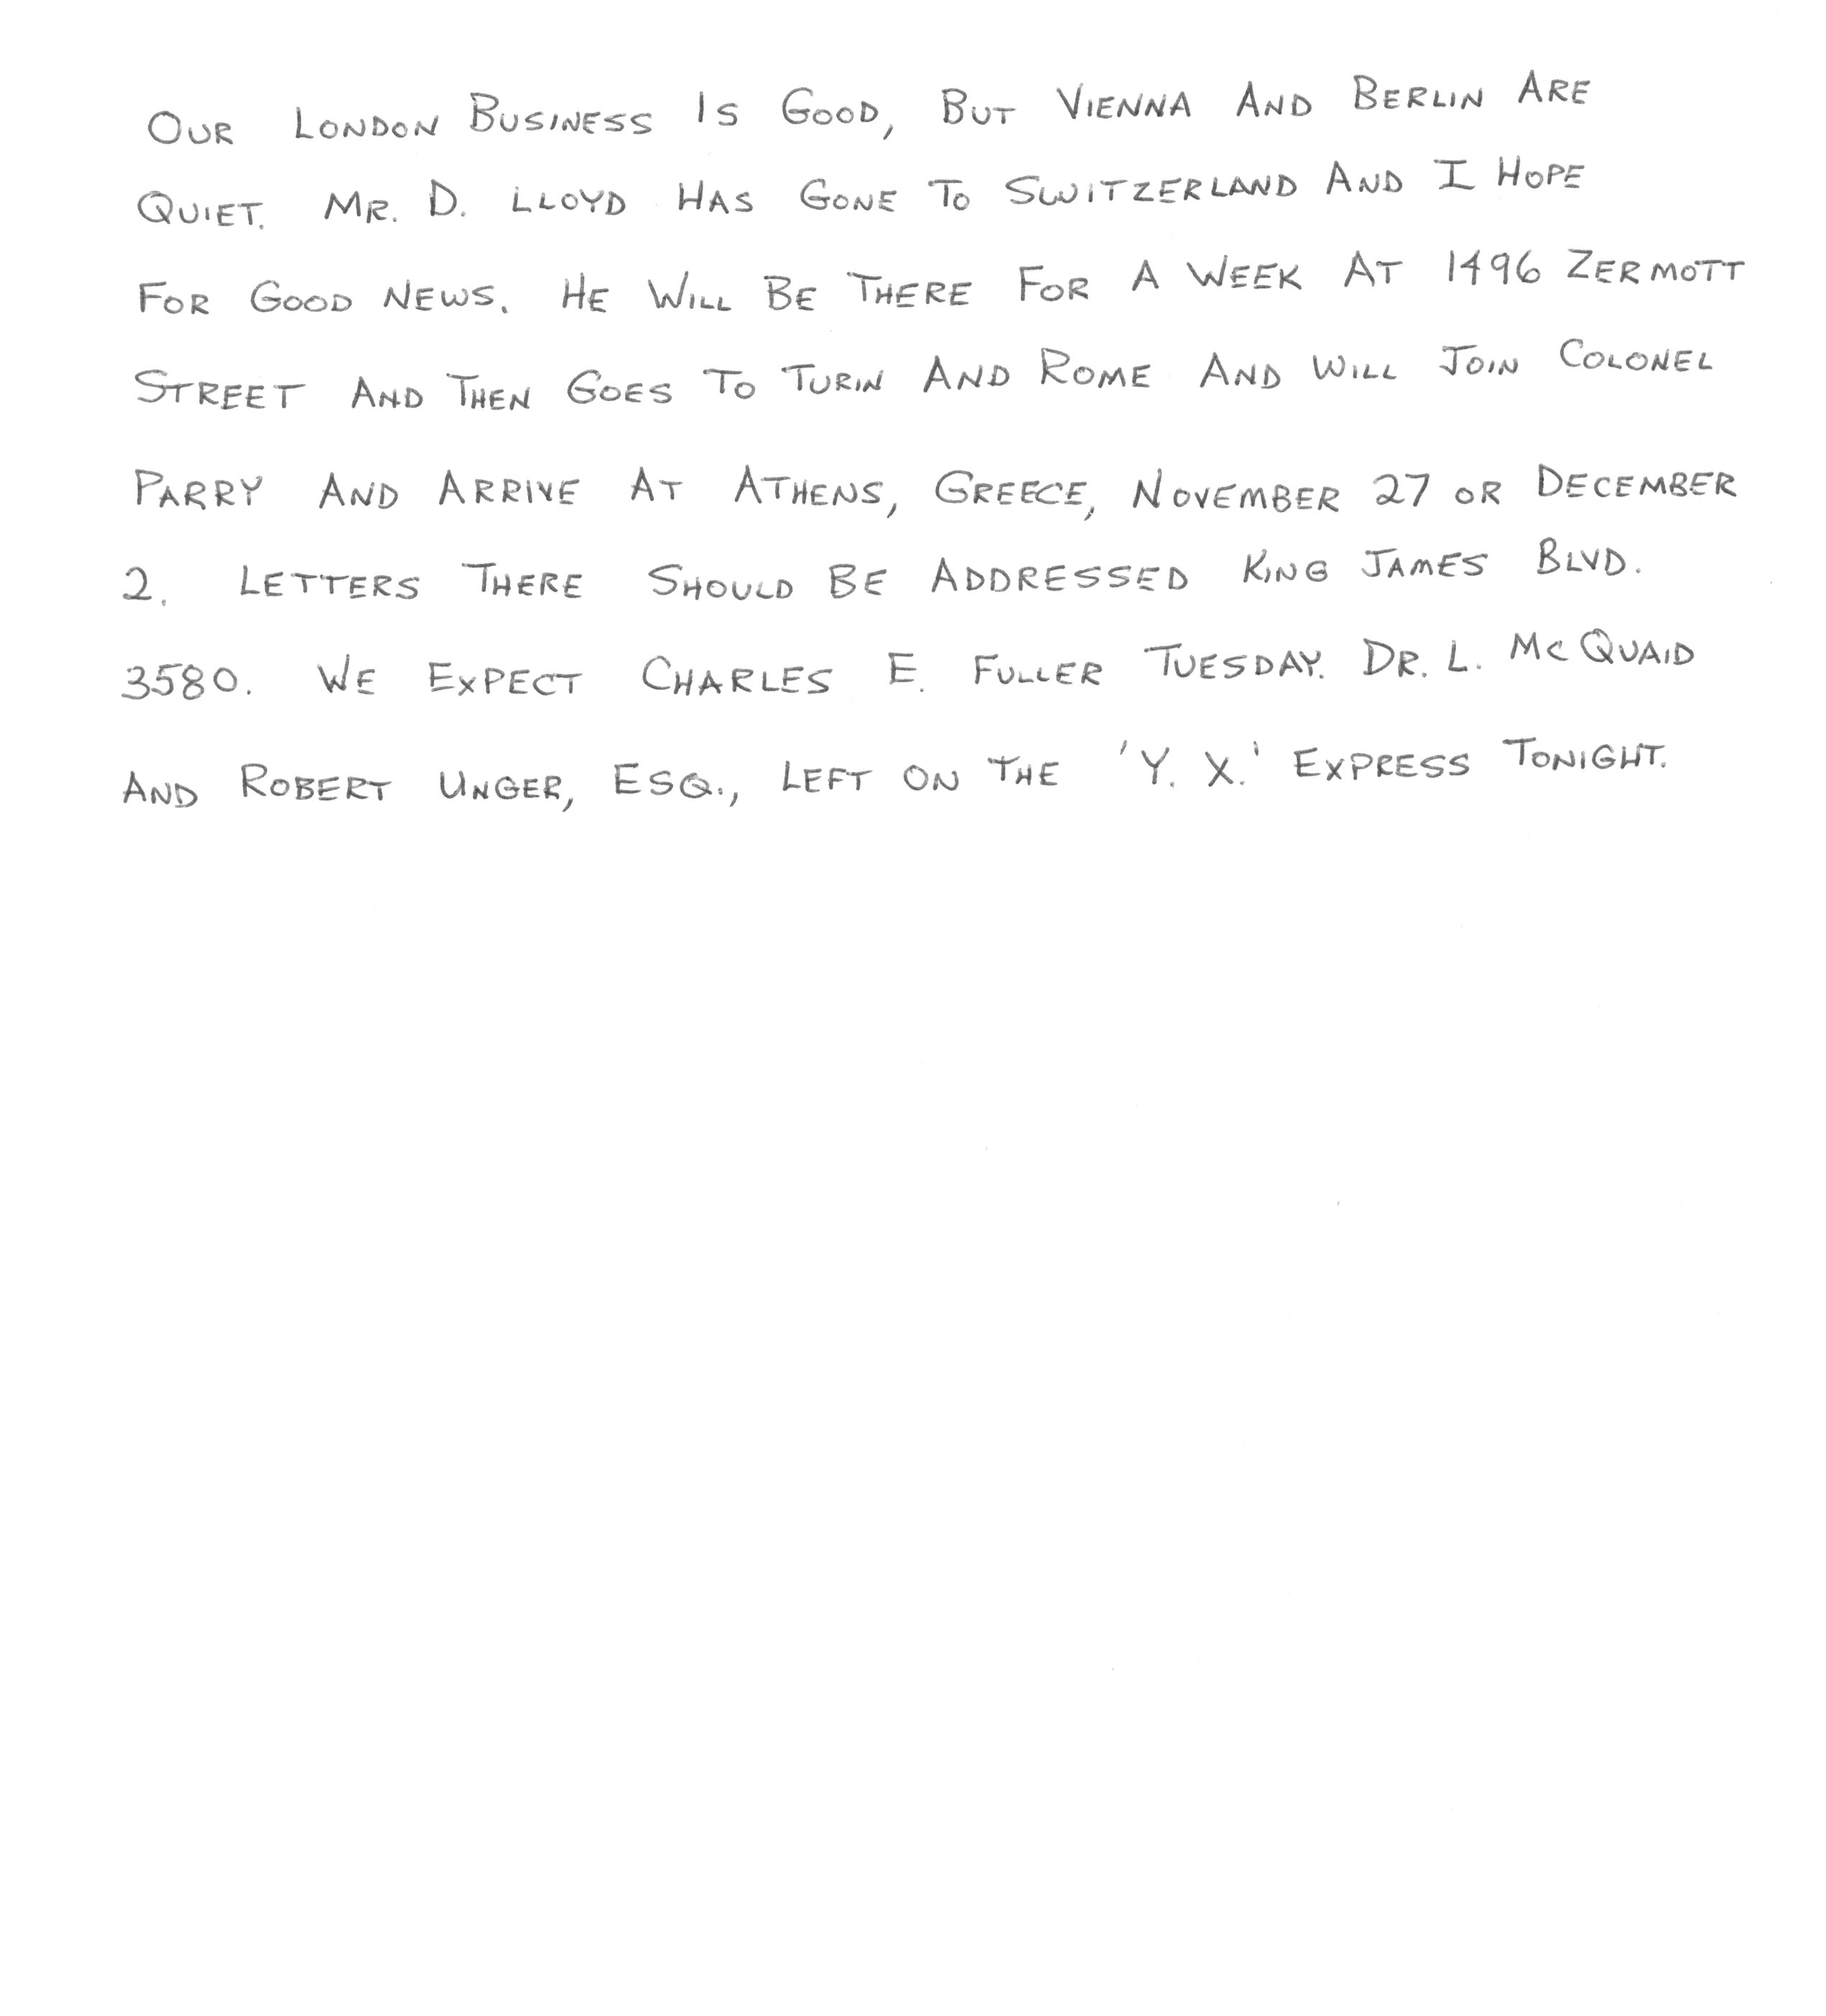 OUR LONDON BUSINESS IS GOOD, BUT VIENNA AND BERLIN ARE
QUIET. MR. D. LLOYD HAS GONE TO SWITZERLAND AND I HOPE
FOR GOOD NEWS. HE WILL BE THERE FOR A WEEK AT 1496 ZERMOTT
STREET AND THEN GOES TO TURIN AND ROME AND WILL JOIN COLONEL
PARRY AND ARRIVE AT ATHENS, GREECE, NOVEMBER 27 OR DECEMBER
2. LETTERS THERE SHOULD BE ADDRESSED KING JAMES BLVD.
3580. WE EXPECT CHARLES E. FULLER TUESDAY. DR. L. MCQUAID
AND ROBERT UNGER, ESQ., LEFT ON THE 'Y. X.' EXPRESS TONIGHT.